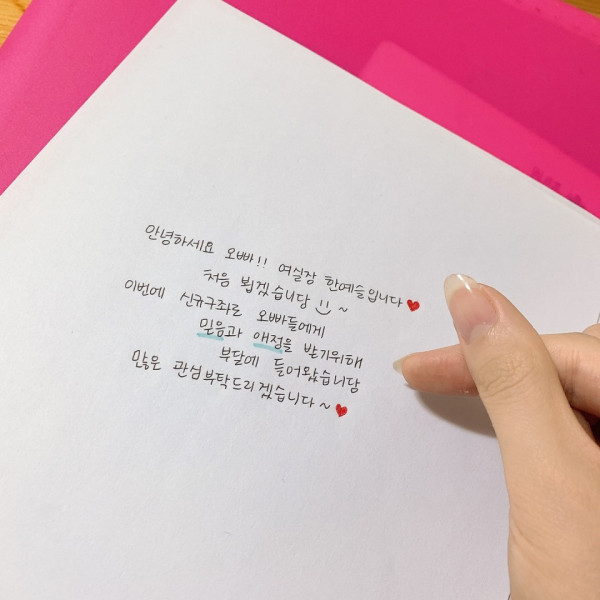 안녕하세요 오빠!! 여실장 한예슬입니다♥
처음 뵙겠습니당 :) ~
이번에 신규구좌로 오빠들에게
믿음과 애정을 받기위해
부달에 들어왔습니당
많은 관심부탁드리겠습니다~♥